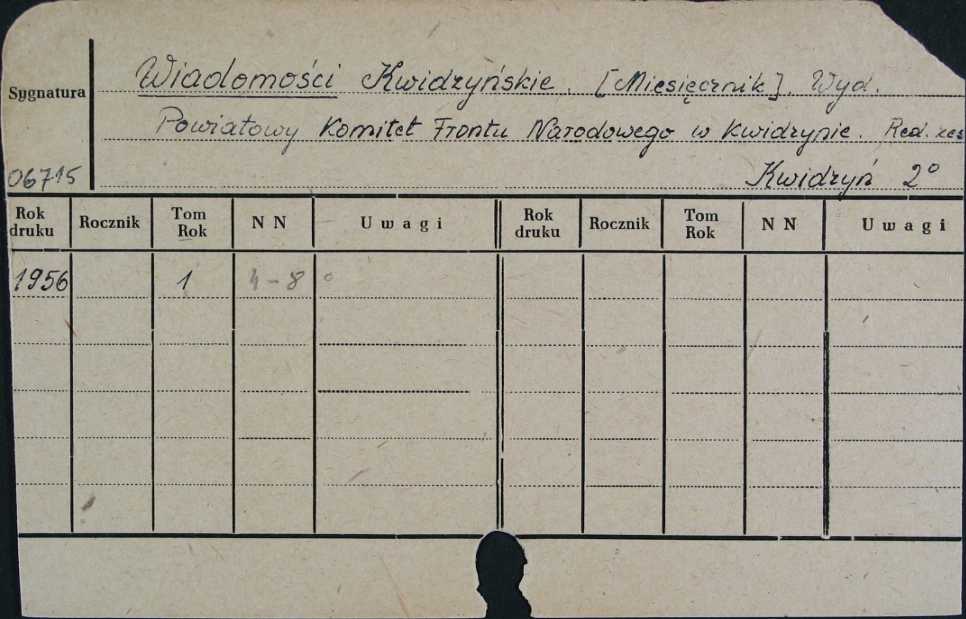 Sygnatura
Wiadomości Kwidzyńskie. [Miesięcznik]. Wyd.
Powiatowy Komitet Frontu Narodowego w Kwidzynie. Red. zes
06715
Kwidzyń 2°
Rok druku Rocznik Tom Rok NN Uwagi Rok druku Rocznik Tom Rok NN Uwagi
1956 1 4-8 °